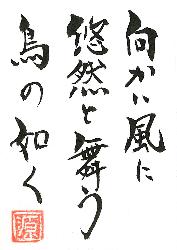 向かい風に
悠然と舞う
鳥の如く
源